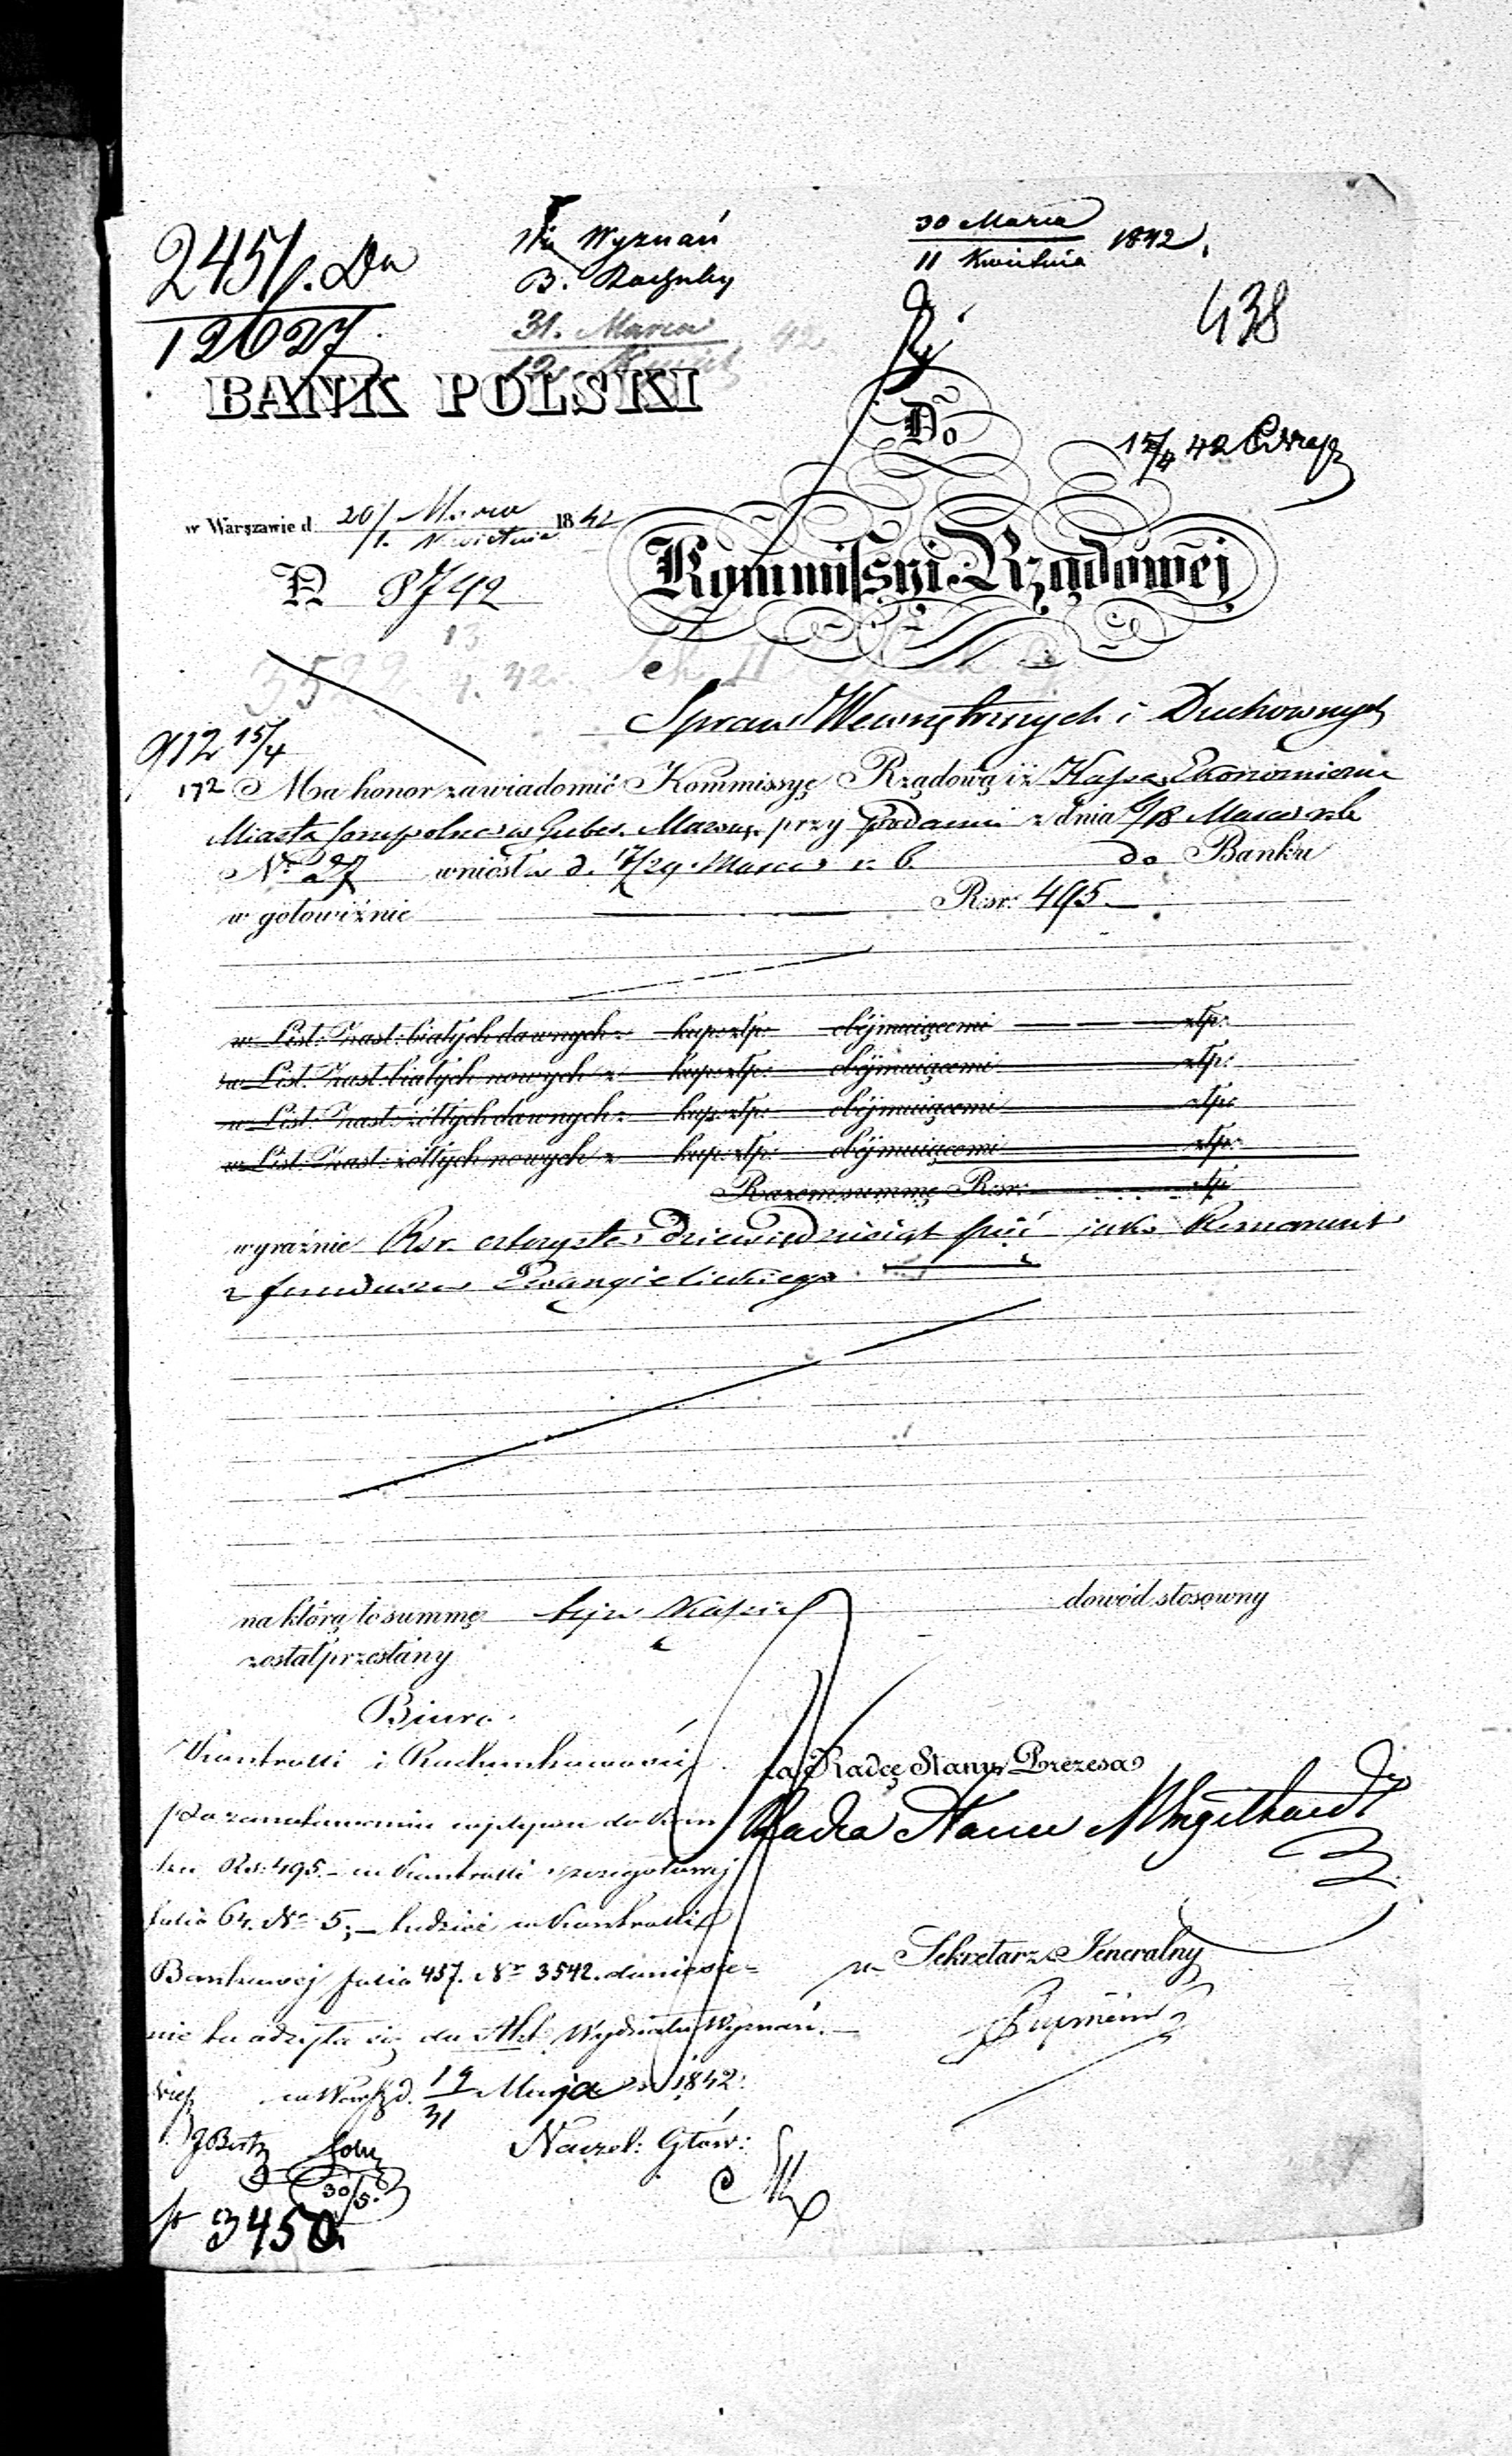 2451/. Dn
12027
Wyznań
B. Rachuby
31. Marca 42
12
30 Marca
11 Kwietnia 1842.
438
BANK POLSKI
Do
15/4 42
w Warszawie d. 20/1. Marca Kwietnia 1842
N 8742
13
4. 42.
Kommissyi Rządowej
3522
Spraw Wewnętrznych i Duchownych
912 15/4
172
Ma honor zawiadomić Kommissyę Rządową iż Kassa Ekonomiczna
Miasta Sompolna w Guber. Mazow. przy podaniu z dnia 6/18 Marca r. b.
No 27 wniosła d. 17/29 Marca r. b. do Banku
w gotowiźnie Rsr: 495.
w List: Zast: białych dawnych z kup: złp: obejmującemi złp:
w List: Zast: białych nowych z kup: złp: obejmującemi złp:
w List: Zast: żółtych dawnych z kup: złp: obejmującemi złp:
w List: Zast: żółtych nowych z kup: złp: obejmującemi złp:
Razem summę Rsr: złp
wyraźnie Rsr. czterysta dziewięćdziesiąt pięć jako Remanent
z funduszu Ewangielickiego
na którą to summę tejże Kassie dowód stosowny
został przesłany
Biuro
Kontrolli i Rachunkowości
Po zanotowaniu wpływu do Ban
ku Rs: 495.– w Kontrolli szczegółowej
folio 64. No 5,– tudzież w Kontrolli
Bankowej folio 457. Nr 3542. doniesie=
nie to odsyła się do Akt Wydziału Wyznań.–
w Warsz. d. 19/31 Maja 1842.
Naczel: Głów:
za Radcę Stanu Prezesa
Radca Stanu Engelhardt
Sekretarz Jeneralny
30/5.
3450